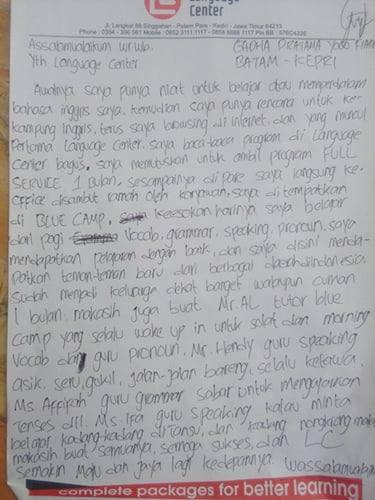 Language
Center
Jl. Langkat 88 Singgahan - Pelem Pare - Kediri - Jawa Timur 64213
Phone : 0354 - 396 561 Mobile : 0852 3111 1117 - 0858 8888 1117 Pin BB : 576C422E
Assalamualaikum wr.wb.
Yth. Language Center
GAGHA PRATAMA YOGO
BATAM - KEPRI
Awalnya saya punya niat untuk belajar atau memperdalam
bahasa inggris saya. kemudian saya punya rencana untuk ke-
kampung Inggris, terus saya browsing di internet, dan yang muncul
Pertama Language Center. saya baca-baca program di Language
Center bagus. saya memutuskan untuk ambil program FULL
SERVICE 1 Bulan, sesampainya di Pare saya langsung ke-
office disambut ramah oleh karyawan, saya di tempatkan
di BLUE CAMP. keesokan harinya saya belajar
dari pagi vocab, grammar, speaking, pronoun. saya
mendapatkan pelajaran dengan baik, dan saya disini menda-
patkan teman-teman baru dari berbagai daerah di Indonesia.
Sudah menjadi keluarga dekat banget walapun cuman
1 bulan. makasih juga buat Mr AL tutor blue
camp yang selalu wake up in untuk solat dan morning
vocab dan guru pronoun. Mr. Hendy guru speaking
asik, seru, gukil, jalan-jalan bareng, selalu ketawa.
Ms Affifah guru grammar sabar untuk mengajarkan
tenses dll. Ms Ifa guru speaking kalau minta
belajar, kadang-kadang di Tansu, dan kadang nongkrong malam
makasih buat semuanya, semoga sukses, dan LC
Semakin Maju dan jaya lagi kedepannya. wassalamualaikum
complete packages for better learning